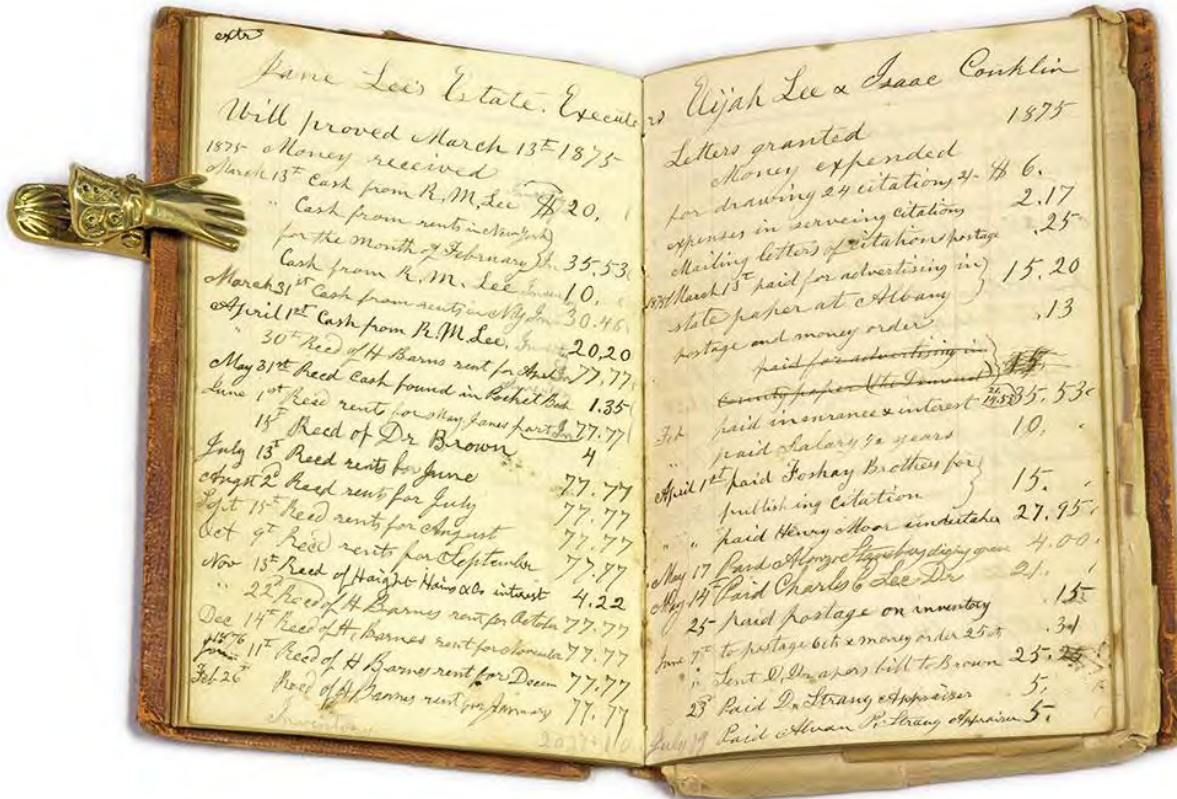 extr
Jane Lee's Estate. Executors Elijah Lee & Isaac Conklin
Will proved March 13th 1875
1875 Money received
March 13th Cash from R. M. Lee $20.
" Cash from rents in New York
for the month of February 35.53
Cash from R. M. Lee 10.
March 31st Cash from rents in NY 30.46
April 1st Cash from R. M. Lee. 20,20
" 30th Recd of H Barns rent for April 77.77
May 31st Recd Cash found in Pocket Book 1.35
June 1st Recd rents for May James part 77.77
15th Recd of Dr Brown 4
July 13th Recd rents for June 77.77
Augst 2d Recd rent for July 77.77
Sept 15th Recd rents for August 77.77
Oct 9th Recd rents for September 77.77
Nov 15th Recd of Haight Hains & Co interest 4.22
" 22d Recd of H Barnes rent for October 77.77
Dec 14th Recd of H. Barnes rent for November 77.77
1876
11th Recd of H Barnes rent for Decem 77.77
Feb 26th Recd of H Barnes rent for January 77.77
Inventory
Letters granted 1875
Money expended
for drawing 24 citations, 2/- $6.
expenses in serveing Citations 2.17
Mailing letters of citation postage .25
1875 March 15th paid for advertising in
state paper at Albany 15.20
postage and money order .13
paid for advertising in
County paper (the Democrat) 15
Feb paid insurance & interest 35.53
" paid Salary ½ years 10.
April 1st paid Foshay Brothers for
publishing citation 15.
" " paid Henry Moor undertaker 27.95
May 17 Paid Alonzo diging grave 4.00
May 14th Paid Charles C Lee Dr 21.
25 paid postage on inventory .15
June 7th to postage 6cts & money order 25cts .31
" " Sent D. Drapers bill to Brown 25.
23d Paid D. Strang Appraiser 5.
July 19 Paid Alvan P. Strang Appraiser 5.